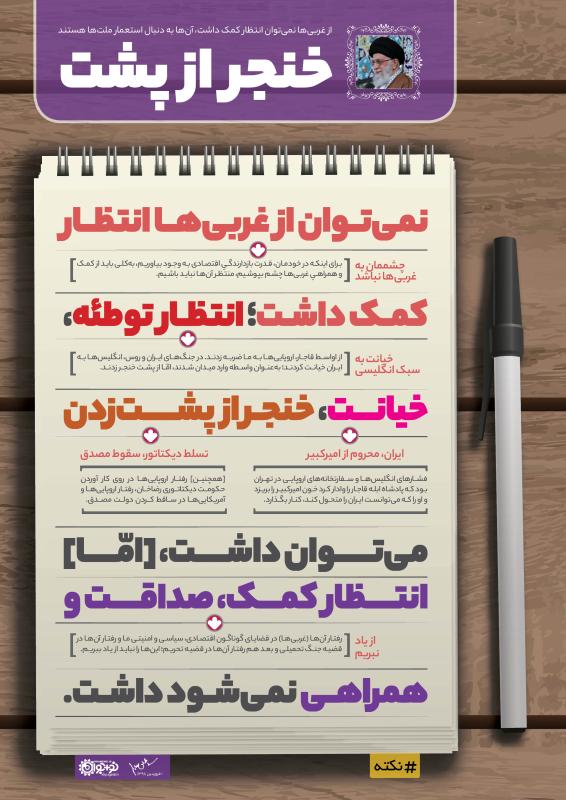 از غربی‌ها نمی‌توان انتظار کمک داشت، آن‌ها به دنبال استعمار ملت‌ها هستند
خنجر از پشت
نمی‌تـوان از غربی‌هـا انتظـار
چشممان به
غربی‌ها نباشد
برای اینکه در خودمان، قدرت بازدارندگیِ اقتصادی به وجود بیاوریم، به‌کلی باید از کمک
و همراهیِ غربی‌ها چشم بپوشیم، منتظر آن‌ها نباید باشیم.
کمـک داشـت؛ انتظـار توطئه،
خیانت به
سبک انگلیسی
از اواسـط قاجار، اروپایی‌هـا بـه مـا ضربـه زدنـد. در جنگ‌هـای ایـران و روس، انگلیس‌هـا به
ایـران خیانت کردند؛ به‌عنـوان واسـطه وارد میـدان شـدند، امّـا از پشـت خنجـر زدنـد.
خیانــت، خنجـر از پشــت‌زدن
ایران، محروم از امیرکبیر
فشـارهای انگلیس‌هـا و سـفارتخانه‌های اروپایـی در تهـران
بـود کـه پادشـاه ابلـه قاجـار را وادار کـرد خـون امیرکبیـر را بریـزد
و او را کـه می‌توانسـت ایـران را متحـول کنـد، کنـار بگـذارد.
تسلط دیکتاتور، سقوط مصدق
[همچنیـن] رفتـار اروپایی‌هـا در روی کار آوردن
حکومـت دیکتاتـوری رضاخـان، رفتـار اروپایی‌هـا و
آمریکایی‌هـا در سـاقط کـردن دولـت مصـدق.
می‌تــوان داشــت، [امّــا]
انتــظار کمــک، صداقــت و
از یاد
نبریم
رفتـار آن‌ها (غربی‌ها) در قضایای گوناگـون اقتصادی، سیاسـی و امنیتـی مـا و رفتـار آن‌ها در
قضیه جنـگ تحمیلی و بعد هـم رفتار آن‌ها در قضیه تحریم؛ این‌ها را نبایـد از یاد ببریم.
همراهـی نمی‌شـود داشـت.
#نکته